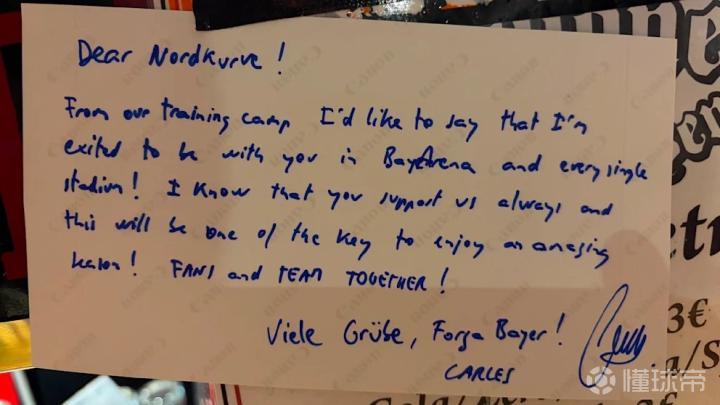 Dear Nordkurve!
From our training camp I'd like to say that I'm
exited to be with you in BayArena and every single
stadium! I know that you support us always and
this will be one of the key to enjoy an amazing
season! FANS and TEAM TOGETHER!
Viele Grüße, Forza Bayer!
CARLES
3€
懂球帝